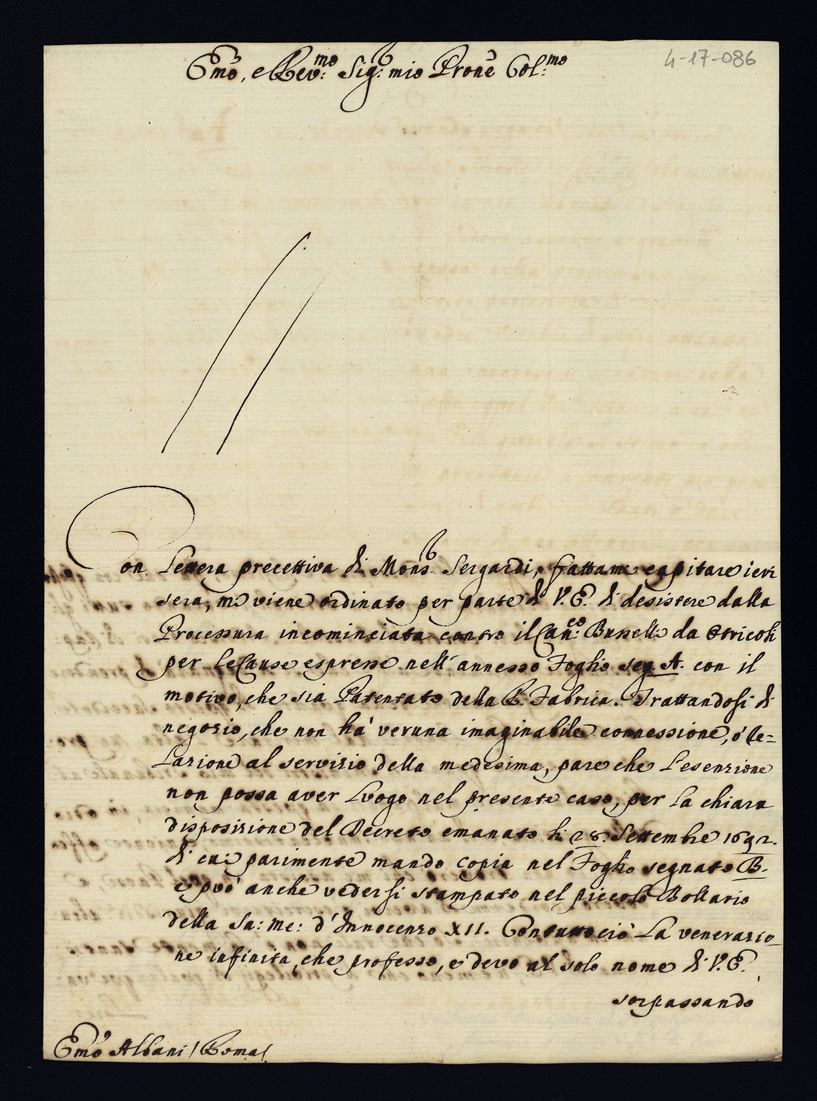 4-17-086
Emõ, e Rev:mo Sig:r mio Prone Col:mo
Con Lettera precettiva di Mons.r Sergardi, fattami capitare ieri
sera, mi viene ordinato per parte di V.E. di desistere dalla
Processura incominciata contro il Can:co Buselli da Otricoli
per le Cause espresse nell'annesso Foglio seg. A. con il
motivo, che sia Patentato della R. Fabrica. Trattandosi di
negozio, che non hà veruna imaginabile connessione, ò re=
lazione al servizio della medesima, pare che l'esenzione
non possa aver luogo nel presente caso, per la chiara
disposizione del Decreto emanato li 28. Settembre 1692.
di cui parimente mando copia nel Foglio segnato B.
e può anche vedersi stampato nel piccolo Bollario
della Sa: Me: d'Innocenzo XII. Contuttociò la venerazio-
ne infinita, che professo, e devo al solo nome di V.E.
sorpassando
Emõ Albani / Roma /